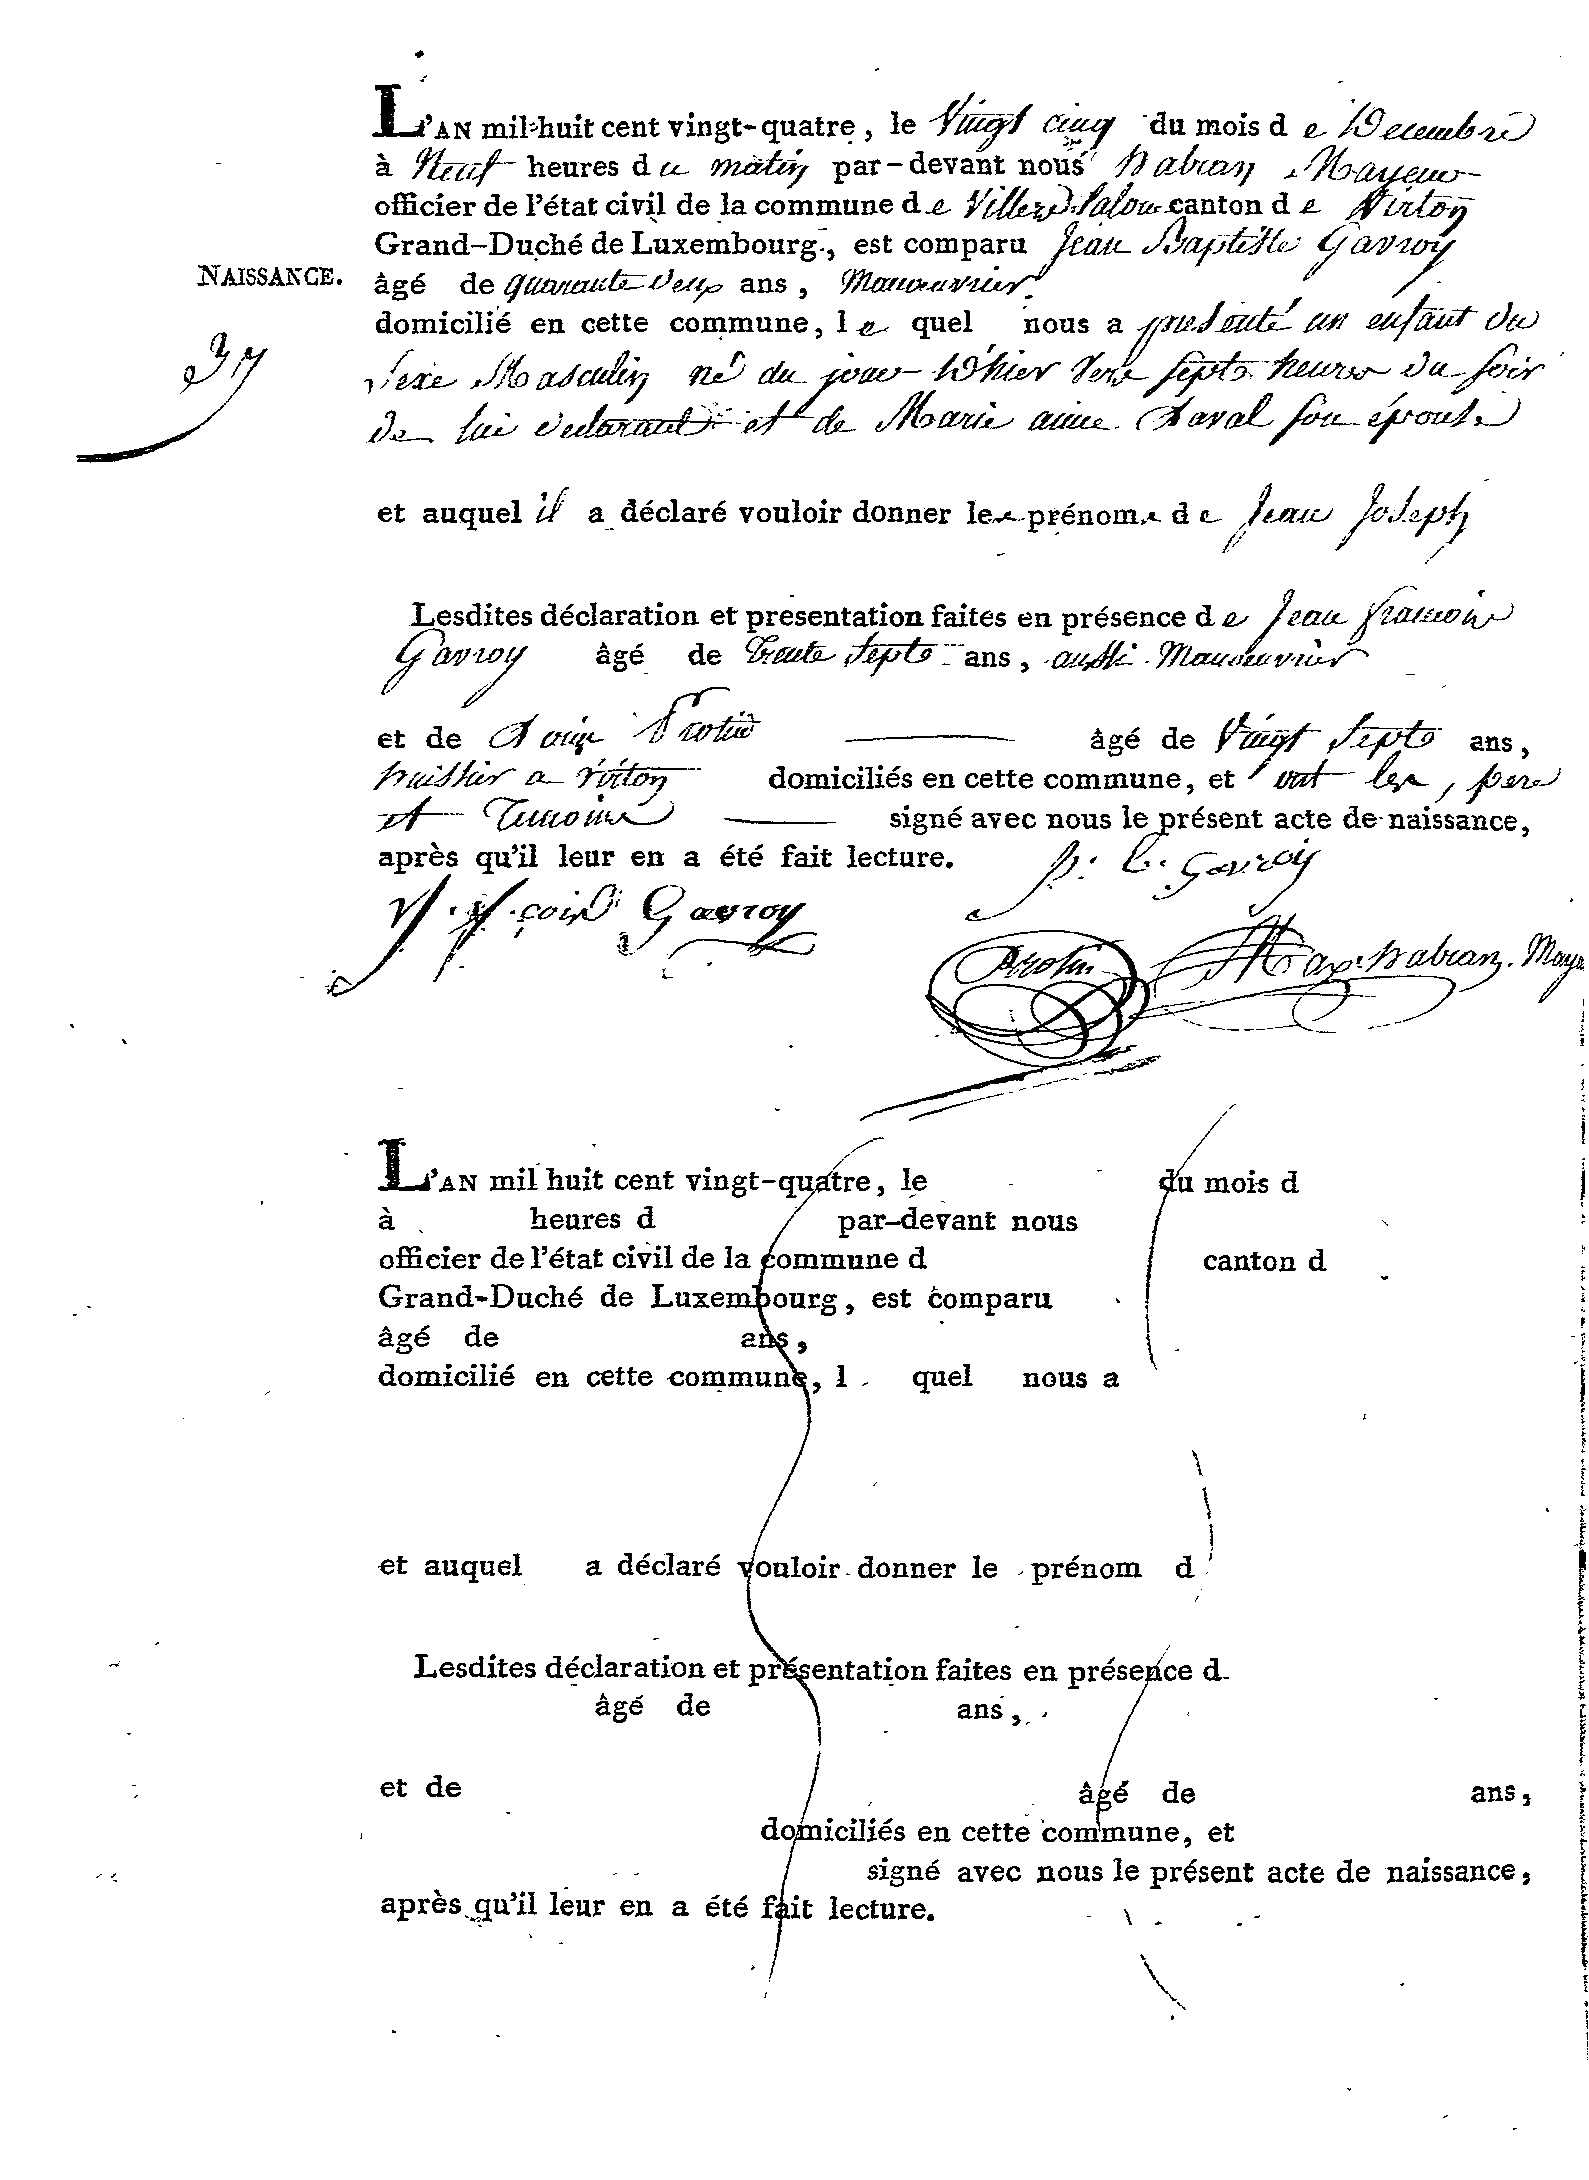 L'AN mil-huit cent vingt-quatre, le Vingt cinq du mois d e Decembre
à Neuf heures d u matin par-devant nous habran Mayeur
officier de l'état civil de la commune d e Villers canton d e Virton
Grand-Duché de Luxembourg, est comparu Jean Baptiste Gavroy
NAISSANCE. âgé de quarante deux ans, Manoeuvrier
domicilié en cette commune, l e quel nous a presenté un enfant du
37
Sexe Masculin né du jour D'hier vers septe heures du soir
de lui declarant et de Marie anne son épouse
et auquel il a déclaré vouloir donner les prénoms d e Jean Joseph
Lesdites déclaration et presentation faites en présence d e Jean francois
Gavroy âgé de trente septe ans, aussi Manoeuvrier
et de âgé de Vingt septe ans,
huissier a virton domiciliés en cette commune, et ont les, pere
et temoins signé avec nous le présent acte de naissance,
après qu'il leur en a été fait lecture. j. b. Gavroy
j. f.çois Gavroy
habran. May
L'AN mil huit cent vingt-quatre, le du mois d
à heures d par-devant nous
officier de l'état civil de la commune d canton d
Grand-Duché de Luxembourg, est comparu
âgé de ans,
domicilié en cette commune, l quel nous a
et auquel a déclaré vouloir donner le prénom d
Lesdites déclaration et présentation faites en présence d
âgé de ans,
et de âgé de ans,
domiciliés en cette commune, et
signé avec nous le présent acte de naissance,
après qu'il leur en a été fait lecture.